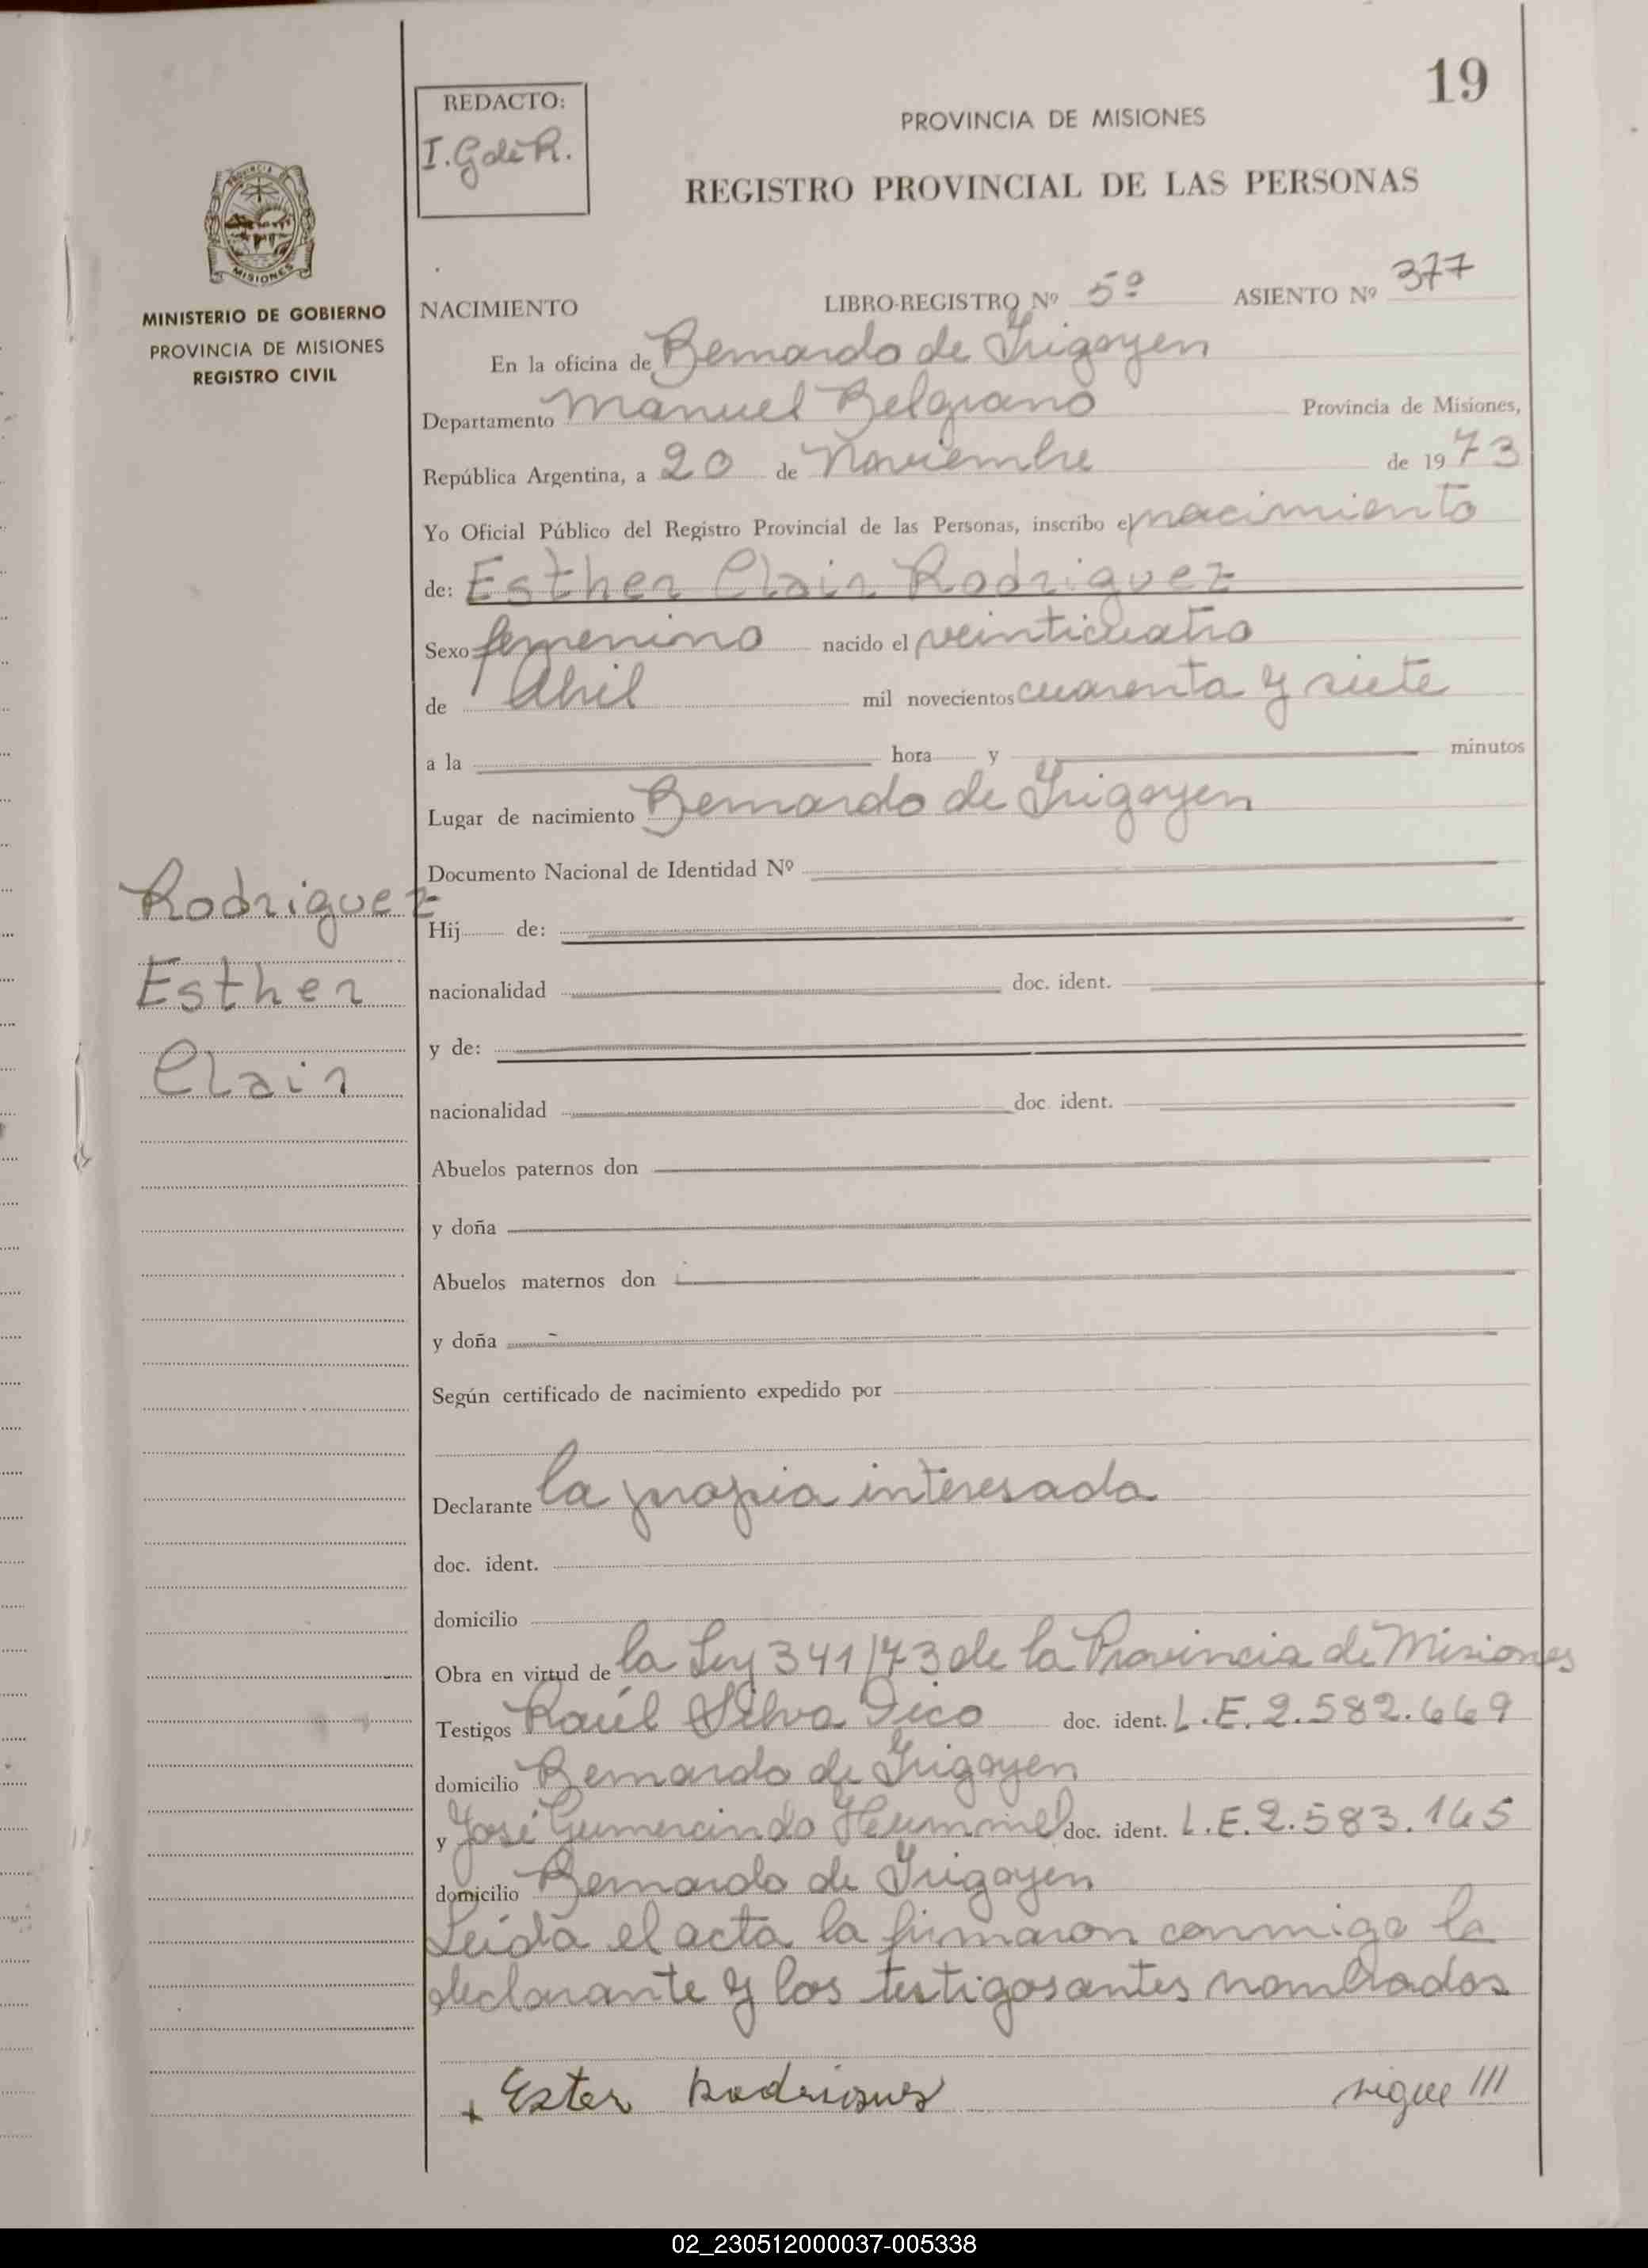 19
REDACTO:
I. G de R.
PROVINCIA DE MISIONES
REGISTRO PROVINCIAL DE LAS PERSONAS
PROVINCIA DE
MISIONES
MINISTERIO DE GOBIERNO
PROVINCIA DE MISIONES
REGISTRO CIVIL
NACIMIENTO LIBRO-REGISTRO Nº 5º ASIENTO Nº 377
En la oficina de Bernardo de Irigoyen
Departamento Manuel Belgrano Provincia de Misiones,
República Argentina, a 20 de Noviembre de 1973
Yo Oficial Público del Registro Provincial de las Personas, inscribo el nacimiento
de: Esther Clair Rodriguez
Sexo femenino nacido el veinticuatro
de Abril mil novecientos cuarenta y siete
a la hora y minutos
Lugar de nacimiento Bernardo de Irigoyen
Documento Nacional de Identidad Nº
Rodriguez
Hij de:
Esther
nacionalidad doc. ident.
y de:
Clair
nacionalidad doc. ident.
Abuelos paternos don
y doña
Abuelos maternos don
y doña
Según certificado de nacimiento expedido por
Declarante la propia interesada
doc. ident.
domicilio
Obra en virtud de la Ley 341/73 de la Provincia de Misiones
Testigos Raúl Silva Dico doc. ident. L.E. 2.582.669
domicilio Bernardo de Irigoyen
y José Gumercindo Hummel doc. ident. L.E. 2.583.165
domicilio Bernardo de Irigoyen
Leída el acta la firmaron conmigo la
declarante y los testigos antes nombrados
+ Ester Rodrigues sigue ///
02_230512000037-005338